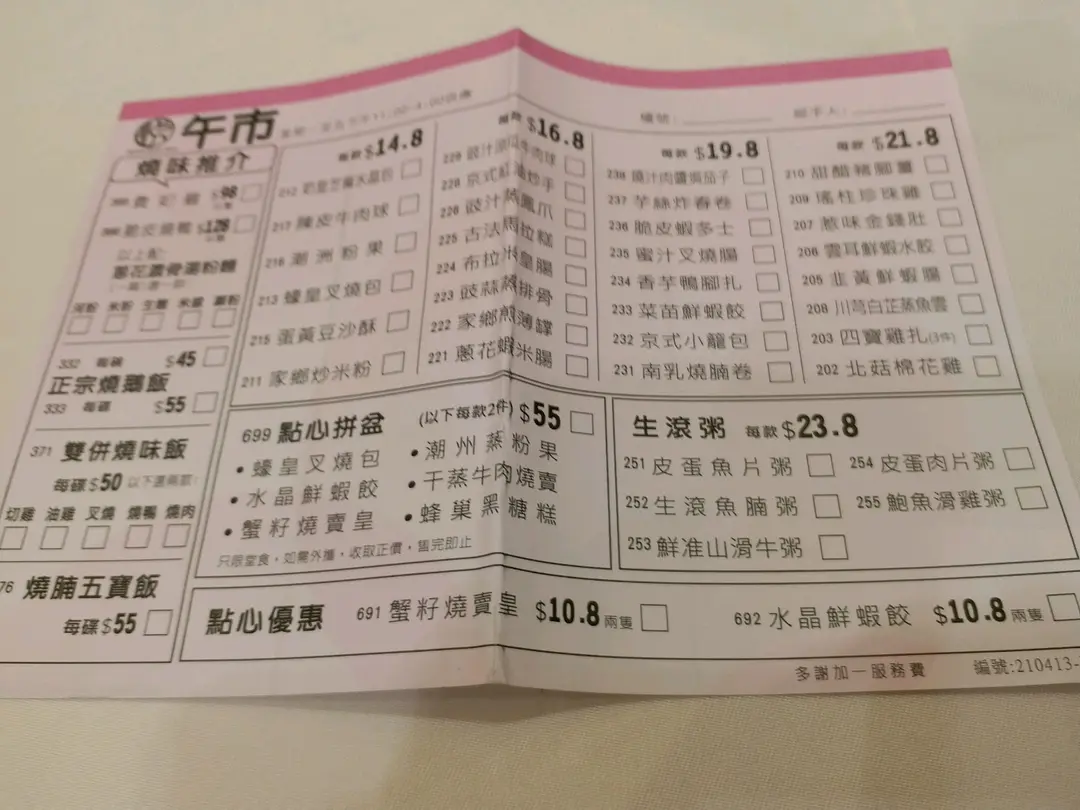 午市
編號:
經手人:
燒味推介
$98
$128
以上配:
蔥花濃骨湯粉麵
河粉 米粉 生麵 米線
332 每碟 $45
正宗燒鵝飯
333 每碟 $55
371 雙併燒味飯
每碟$50 以下選兩款:
切雞 油雞 叉燒 燒鴨 燒肉
76 燒腩五寶飯
每碟$55
每款$14.8
212 奶皇芝麻水晶包
217 陳皮牛肉球
216 潮洲粉果
213 蠔皇叉燒包
215 蛋黃豆沙酥
211 家鄉炒米粉
每款$16.8
229 豉汁涼瓜牛肉球
228 京式紅油炒手
226 豉汁蒸鳳爪
225 古法馬拉糕
224 布拉米皇腸
223 豉蒜蒸排骨
222 家鄉煎薄罉
221 蔥花蝦米腸
每款$19.8
238 燒汁肉醬焗茄子
237 芋絲炸春卷
236 脆皮蝦多士
235 蜜汁叉燒腸
234 香芋鴨腳扎
233 菜苗鮮蝦餃
232 京式小籠包
231 南乳燒腩卷
每款$21.8
210 甜醋豬腳薑
209 瑤柱珍珠雞
207 惹味金錢肚
206 雲耳鮮蝦水餃
205 韭黃鮮蝦腸
208 川芎白芷蒸魚雲
203 四寶雞扎(3件)
202 北菇棉花雞
699 點心拼盆 (以下每款2件) $55
• 蠔皇叉燒包 • 潮州蒸粉果
• 水晶鮮蝦餃 • 干蒸牛肉燒賣
• 蟹籽燒賣皇 • 蜂巢黑糖糕
只限堂食，如需外攜，收取正價，售完即止
生滾粥 每款$23.8
251 皮蛋魚片粥 254 皮蛋肉片粥
252 生滾魚腩粥 255 鮑魚滑雞粥
253 鮮准山滑牛粥
點心優惠 691 蟹籽燒賣皇 $10.8兩隻 692 水晶鮮蝦餃 $10.8兩隻
多謝加一服務費 編號:210413-